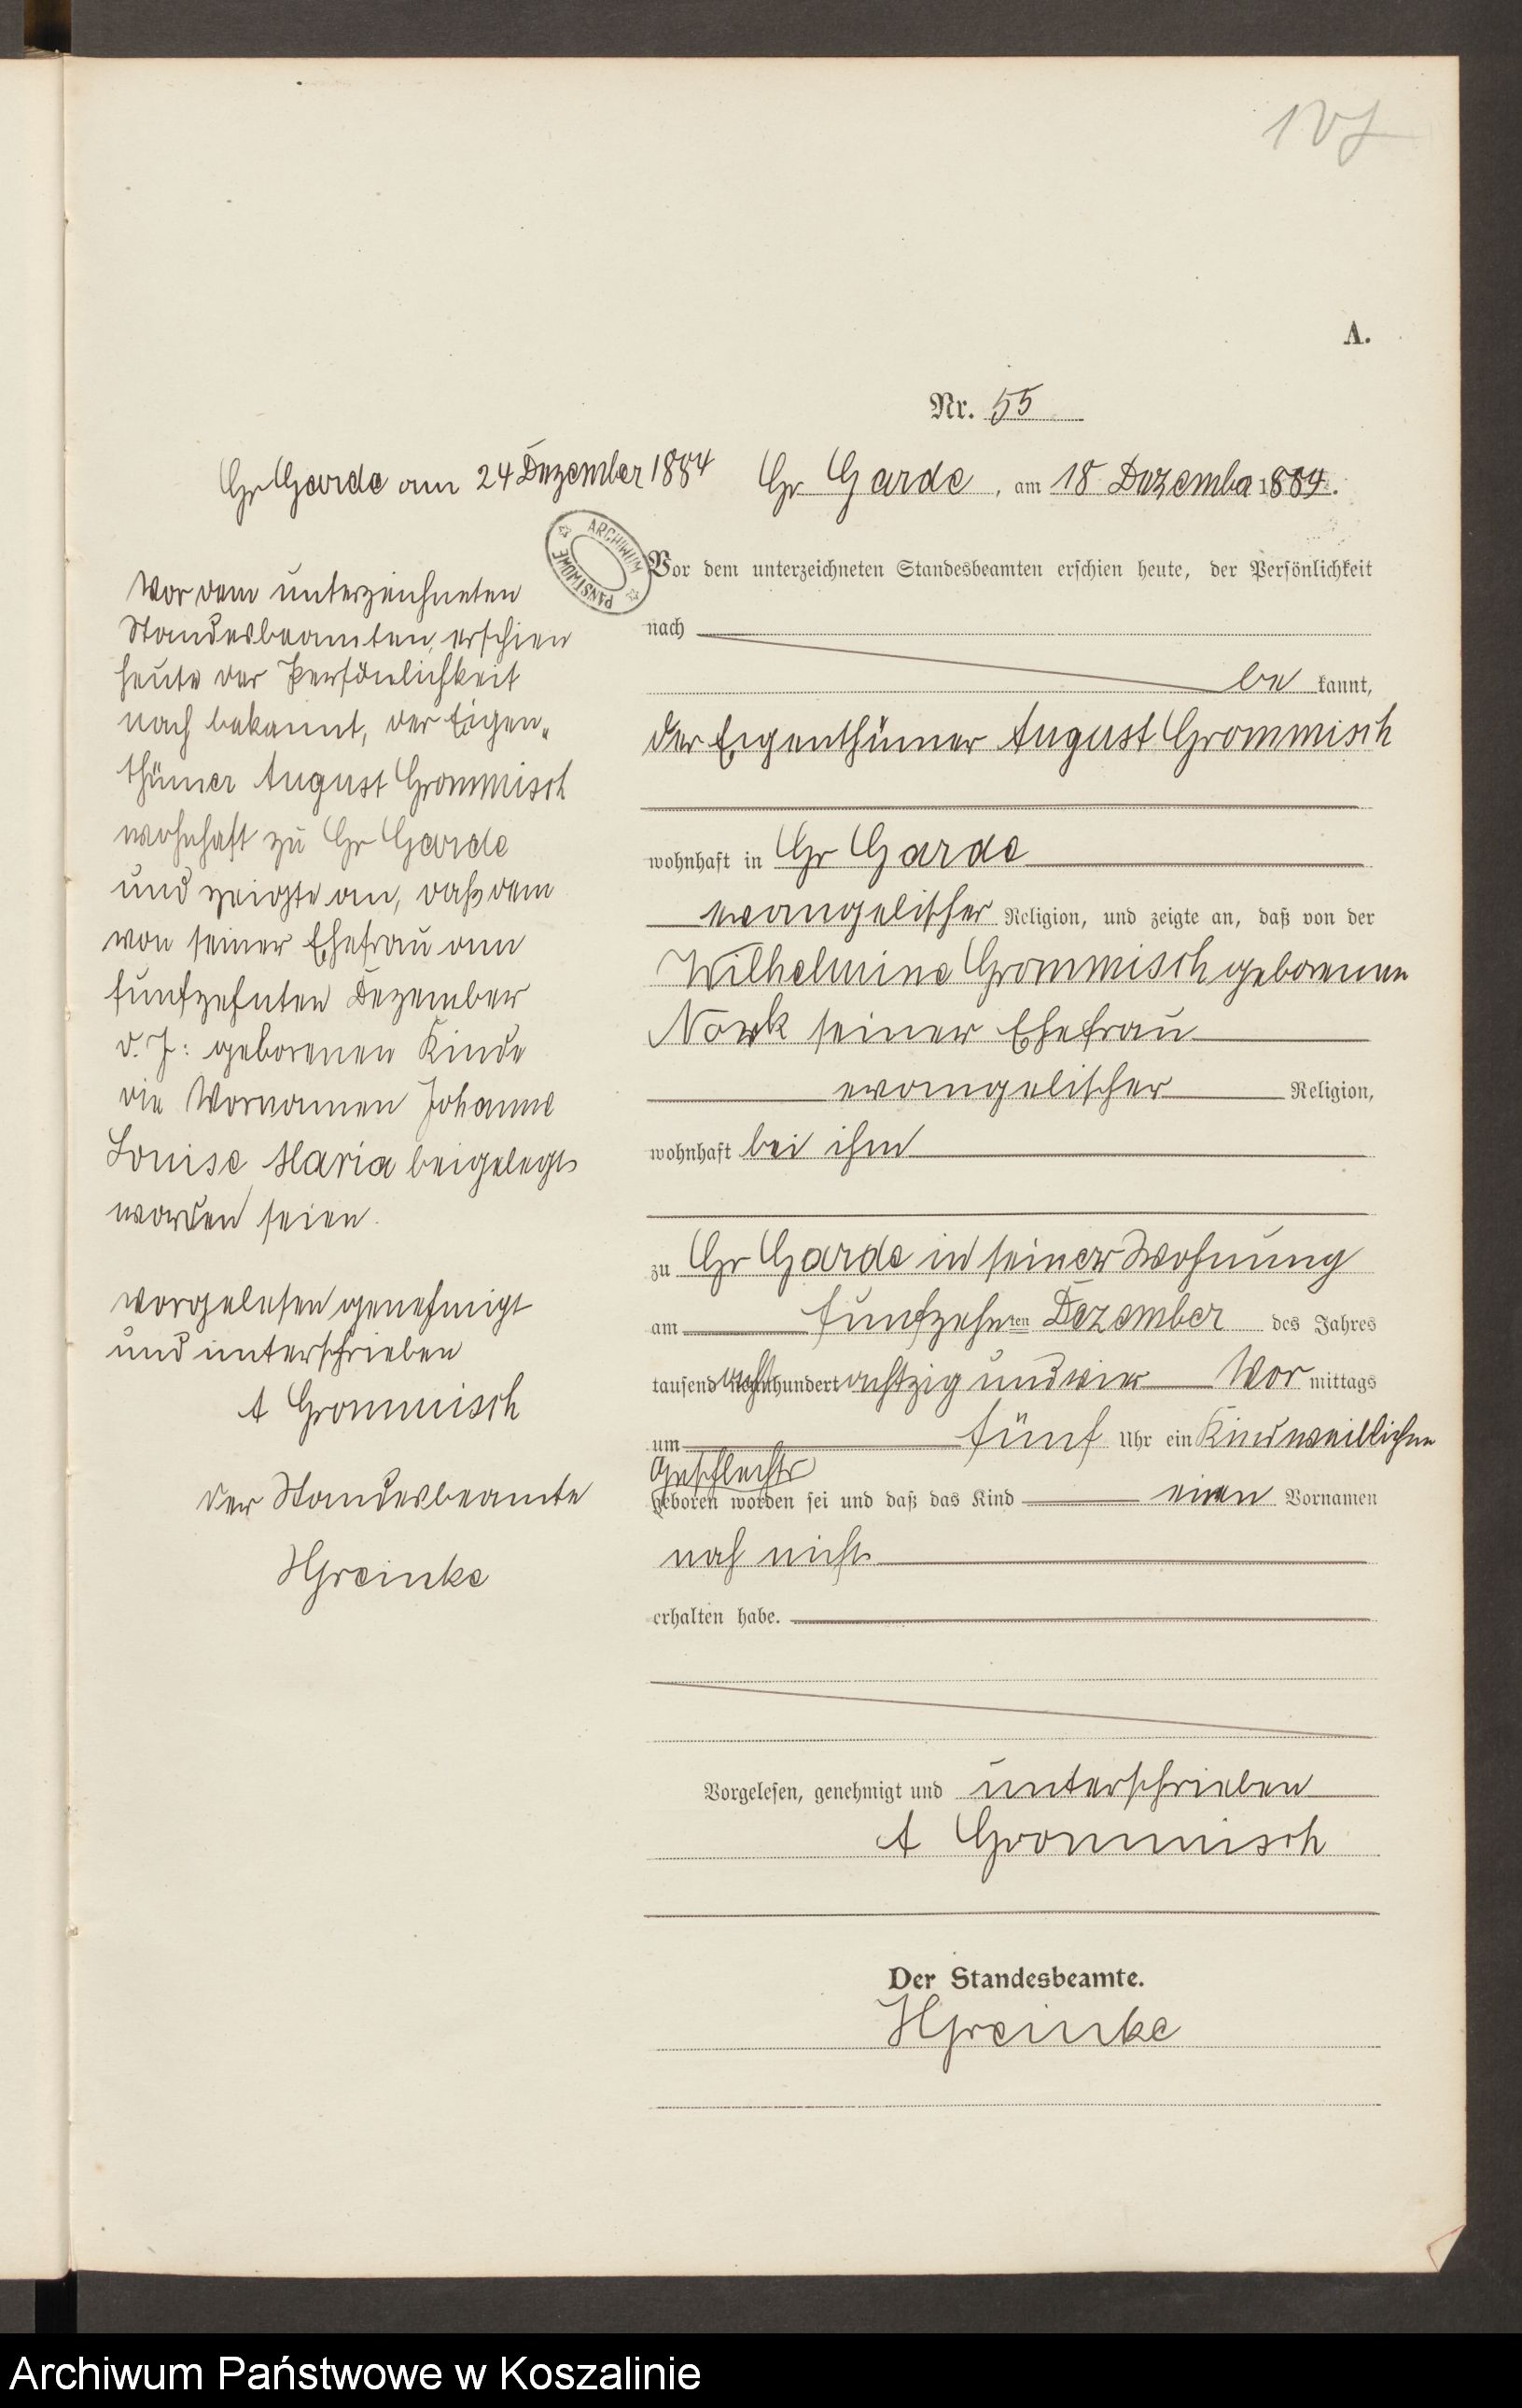 A.
Nr. 55
Gr Garde am 24 Dezember 1884
Vor dem unterzeichneten
Standesbeamten, erschien
heute der Persönlichkeit
nach bekannt, der Eigen„
thümer August Grommisch
wohnhaft zu Gr Garde
und zeigte an, daß dem
von seiner Ehefrau am
fünfzehnten Dezember
d. J: geborenen Kinde
die Vornamen Johanne
Louise Maria beigelegt
worden seien.
vorgelesen genehmigt
und unterschrieben
A Grommisch
der Standesbeamte
HGreinke
Gr Garde, am 18 Dezember 1884.
ARCHIWUM PAŃSTWOWE
Vor dem unterzeichneten Standesbeamten erschien heute, der Persönlichkeit
nach
be kannt,
der Eigenthümer August Grommisch
wohnhaft in Gr Garde
evangelischer Religion, und zeigte an, daß von der
Wilhelmine Grommisch geborenen
Nowk seiner Ehefrau
evangelischer Religion,
wohnhaft bei ihm
zu Gr Garde in seiner Wohnung
am fünfzehnten Dezember des Jahres
tausend achthundert achtzig und vier Vor mittags
um fünf Uhr ein Kind weiblichen
Geschlechts
geboren worden sei und daß das Kind einen Vornamen
noch nicht
erhalten habe.
Vorgelesen, genehmigt und unterschrieben
A Grommisch
Der Standesbeamte.
HGreinke
Archiwum Państwowe w Koszalinie